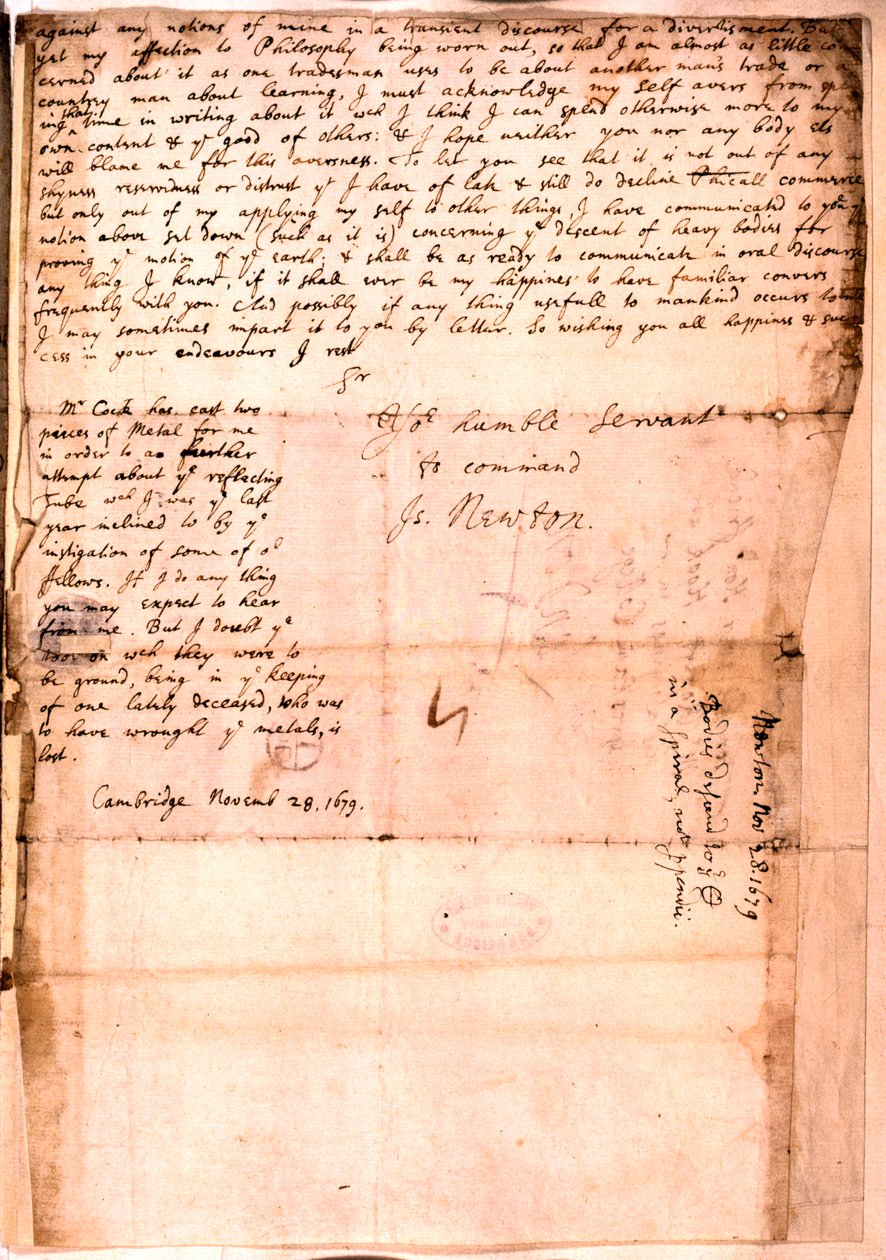 against any notions of mine in a transient discourse for a divertisment. But
yet my affection to Philosophy being worn out, so that I am almost as little con
cerned about it as one tradesman uses to be about another man's trade or a
country man about learning, I must acknowledge my self avers from spen
ing that time in writing about it wch I think I can spend otherwise more to my
own content & ye good of others: & I hope neither you nor any body els
will blame me for this aversness. To let you see that it is not out of any
shyness reservedness or distrust yt I have of late & still do decline Phicall commerce
but only out of my applying my self to other things, I have communicated to you ye
notion above set down (such as it is) concerning ye descent of heavy bodies for
proving ye motion of ye earth; & shall be as ready to communicate in oral discourse
any thing I know, if it shall ever be my happines to have familiar convers
frequently with you. And possibly if any thing usefull to mankind occurs to me
I may sometimes impart it to you by letter. So wishing you all happines & suc
cess in your endeavours I rest
Sr
Yor humble Servant
to command
Is. Newton.
Mr Cock has cast two
pieces of Metal for me
in order to a further
attempt about ye reflecting
Tube wch I was ye last
year inclined to by ye
instigation of some of or
fellows. If I do any thing
you may expect to hear
from me. But I doubt ye
tool on wch they were to
be ground, being in ye keeping
of one lately deceased, who was
to have wrought ye metals, is
lost.
Cambridge Novemb 28. 1679.
Newton. Nov 28. 1679
Bodies descend to ye ⊕
in a spirall, not